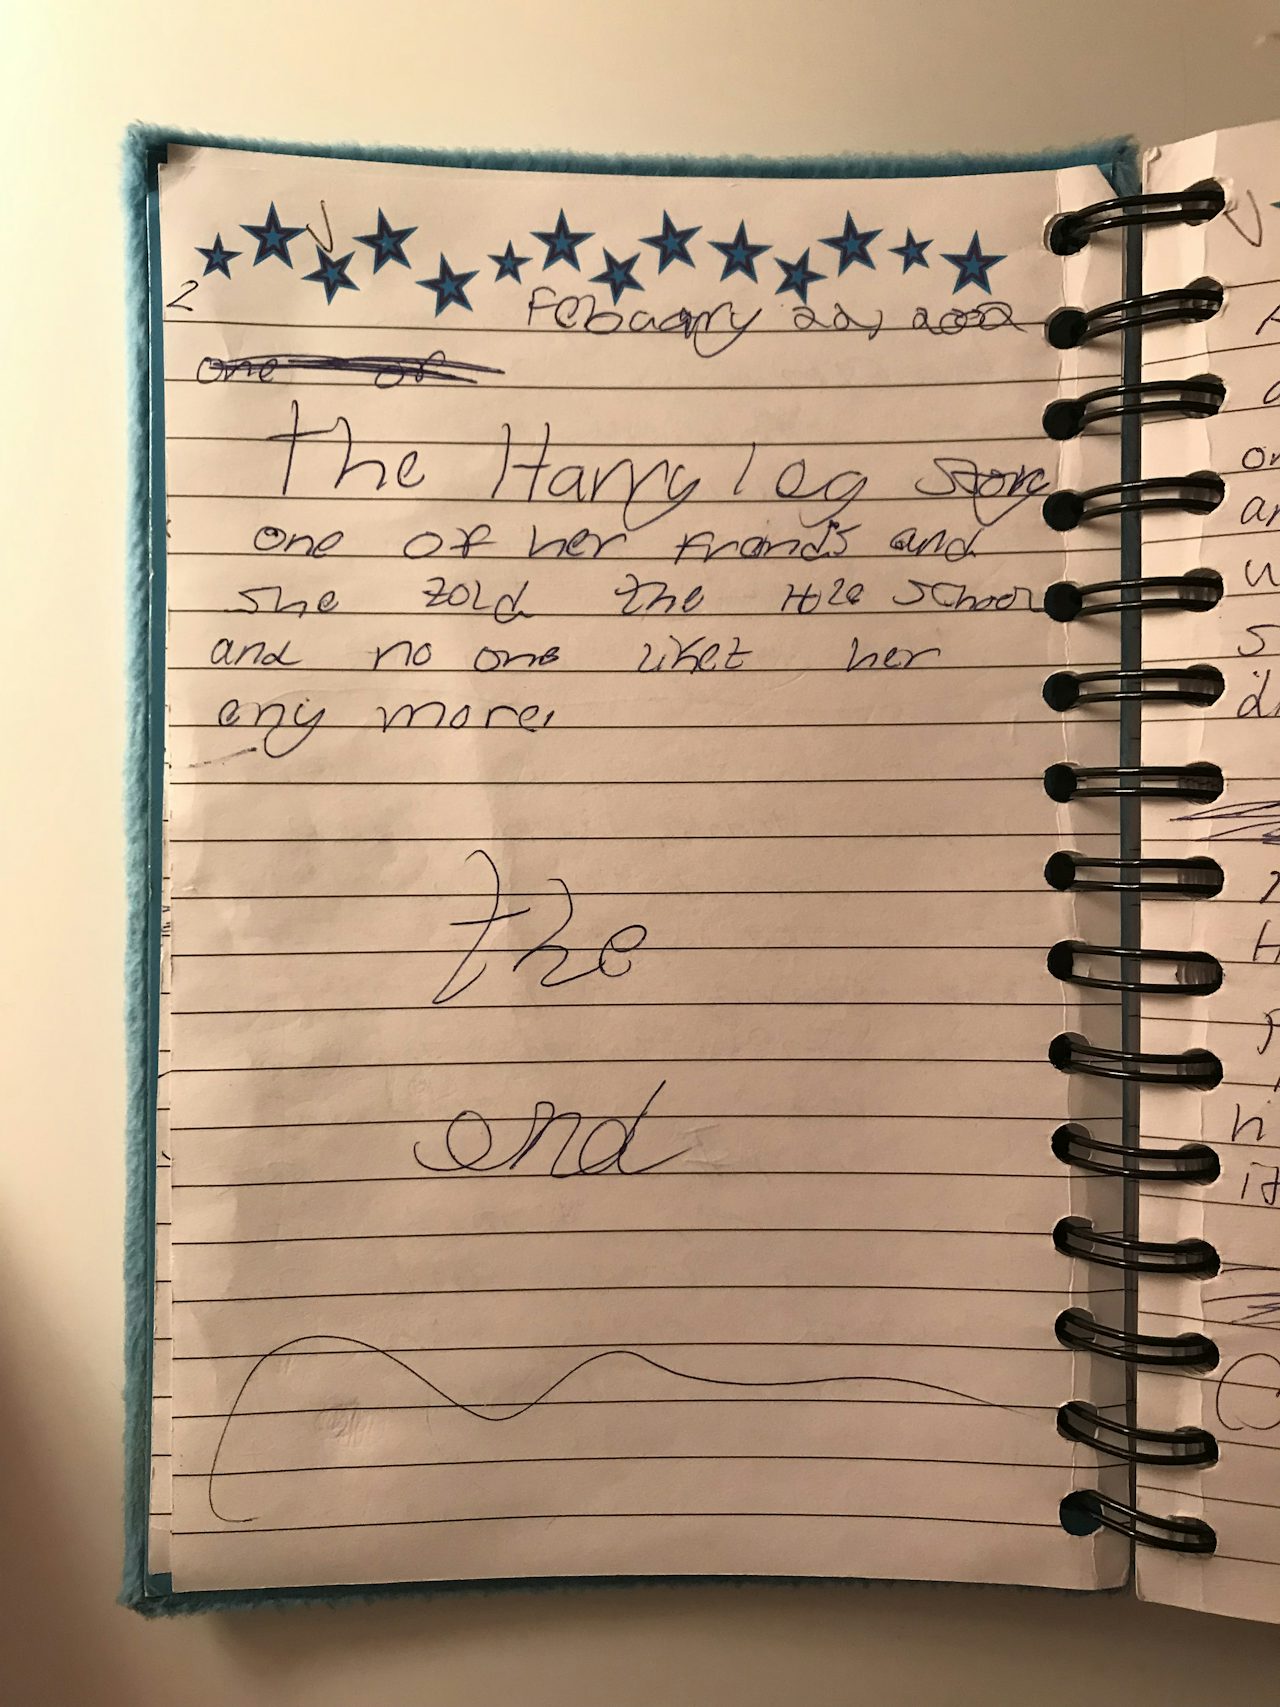 2
Febuary 22, 2002
one of
The Harry leg story
one of her friends and
she told the Hole school
and no one liket her
any more.
the
end
or
an
S
H
it